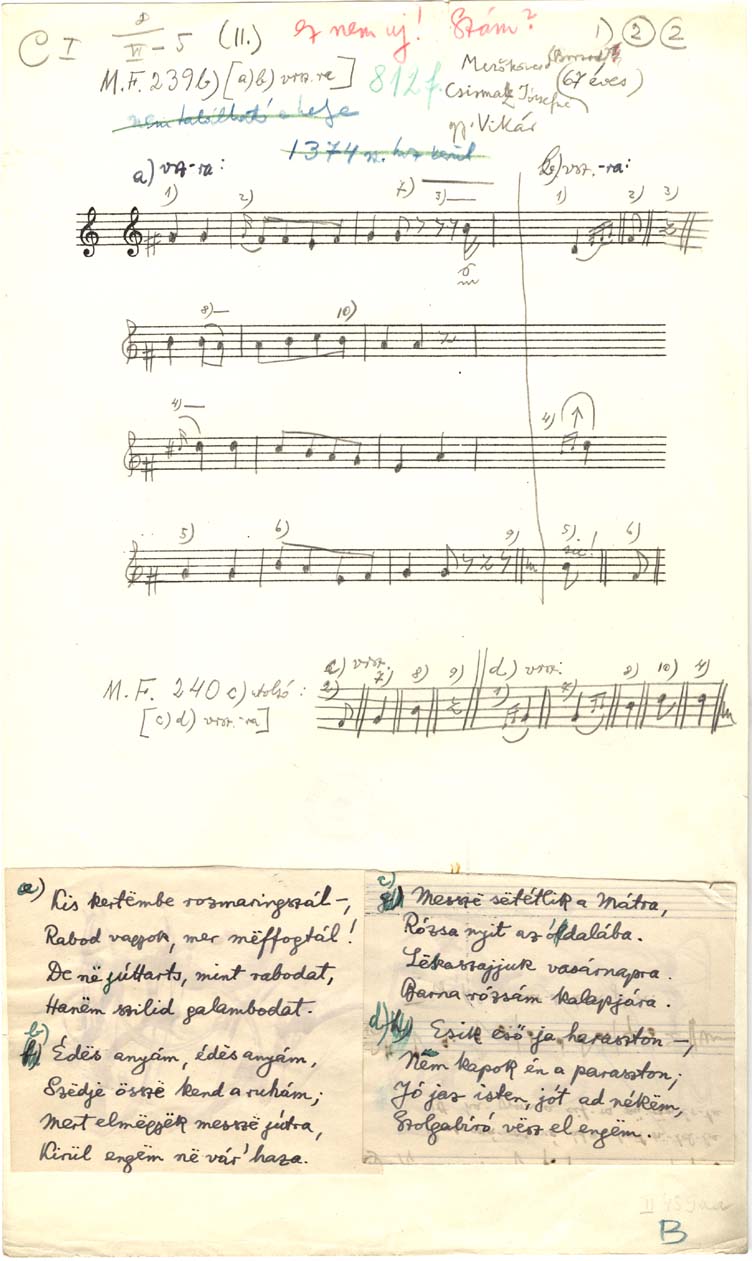 C I
VI - 5 (II.) ez nem uj! Szám? 1) 2 2
M.F. 239b) [a) b) vsz. re] 812 f.
Mezőkövesd (Borsod)
Csirmaz Józsefné (67 éves)
gy. Vikár
nem található a helye
1374 sz. hoz kerül
a) vsz-ra: b) vsz.-ra:
1) 2) 7) 3) 1) 2) 3)
8) 10)
4) 4)
5) 6) 9) 5) sic! 6)
M. F. 240 c) utolsó:
[c) d) vsz.-ra]
c) vsz. d) vsz.
2) 7) 8) 9) 1) 7) 8) 10) 4)
a) Kis kertëmbe rozmaringszál –,
Rabod vagyok, mer mëffogtál!
De në júttarts, mint rabodat,
Hanëm szilid galambodat.
b) Édës anyám, édës anyám,
Szëdje összë kend a ruhám;
Mert elmëgyëk messzë jútra,
Kirül engëm në vár' haza.
c) Messzë sëtétlik a Mátra,
Rózsa nyit az óldalába.
Lëkaszajjuk vasárnapra
Barna rózsám kalapjára.
d) Esik eső ja haraszton –,
Nëm kapok én a paraszton;
Jó jaz isten, jót ad nékëm,
Szolgabíró vësz el engëm.
B